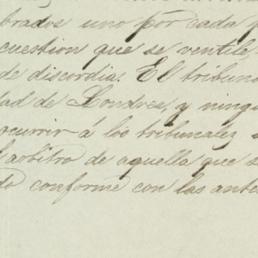 brados uno por cada p
cuestion que se ventile,
de discordia. El tribuna
dad de Londres, y ningu
ocurrir á los tribunales
arbitro de aquella que s
do conforme con las ante